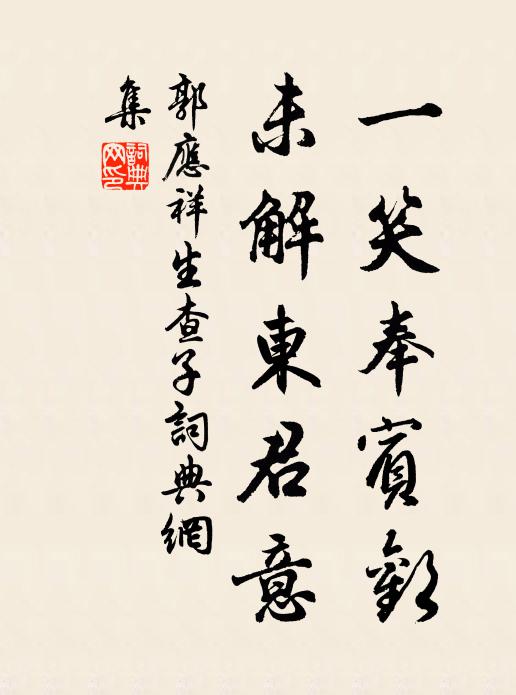 一笑奉賓歡
未解東君意
郭應祥生查子詞典網
集
詞典網印